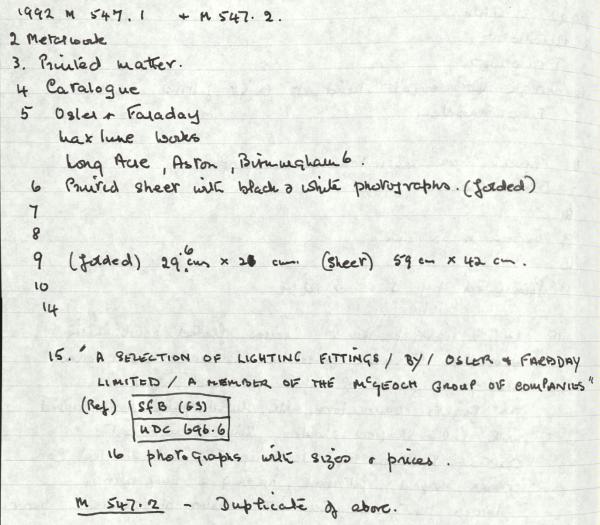 1992 M 547.1 + M 547.2.
2 Metalwork
3. Printed matter.
4 Catalogue
5 Osler + Faraday
works
Long Acre, Aston, Birmingham 6.
6 Printed sheet with black & white photographs. (folded)
7
8
9 (folded) 29.6 cms × 21 cm. (sheet) 59 cm × 42 cm.
10
14
15. "A SELECTION OF LIGHTING FITTINGS / BY / OSLER & FARADAY
LIMITED / A MEMBER OF THE McGEOCH GROUP OF COMPANIES"
(Ref) SfB (63)
UDC 696.6
16 photographs with sizes & prices.
M 547.2 - Duplicate of above.